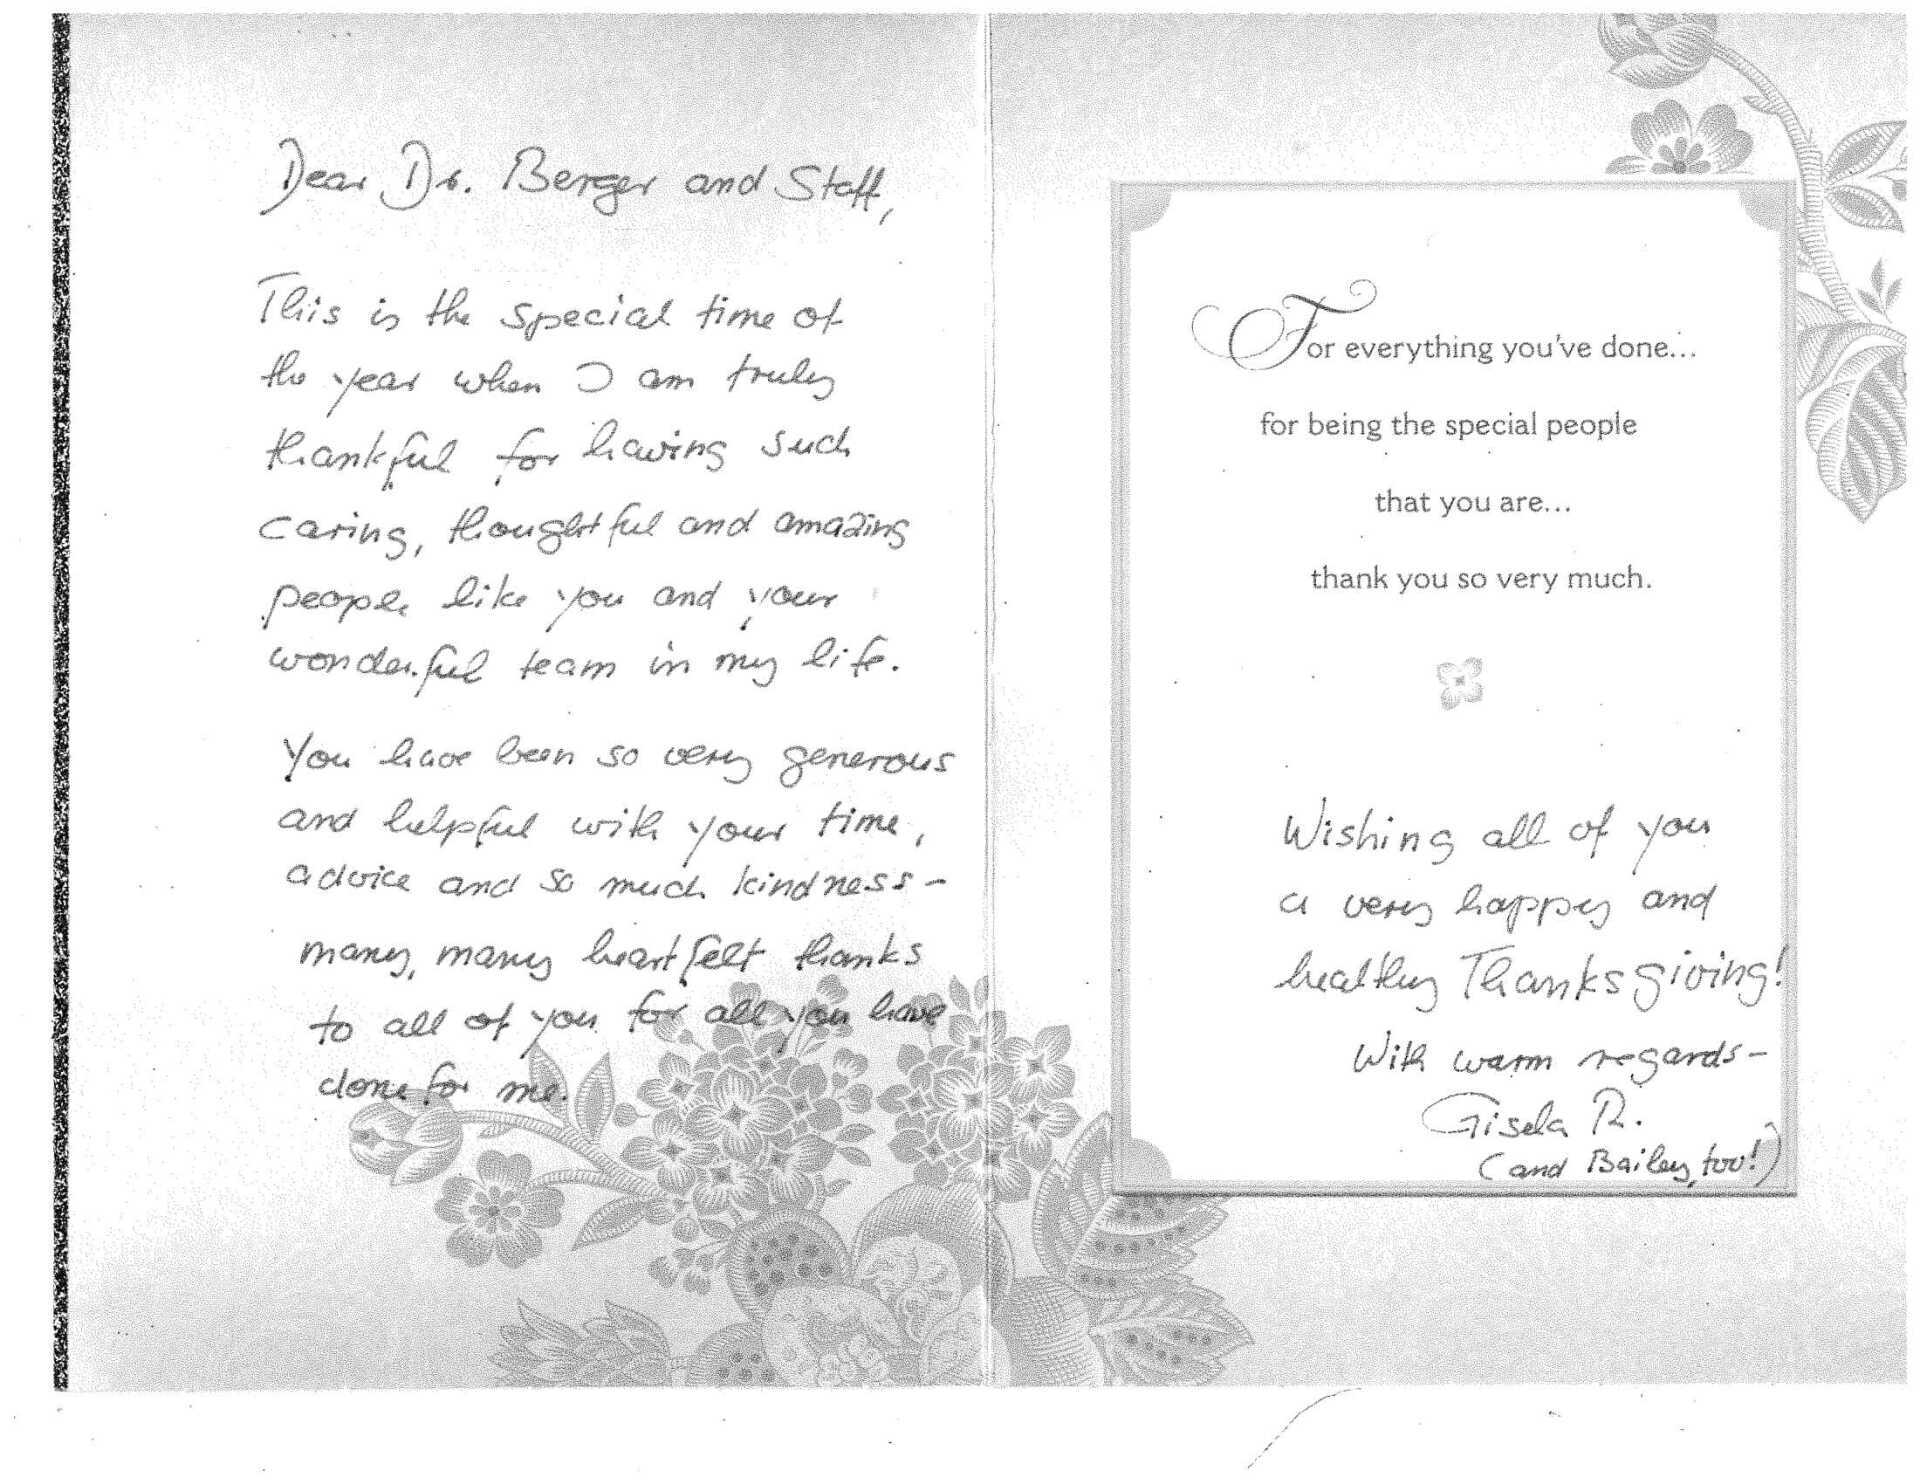 Dear Dr. Berger and Staff,
This is the special time of
the year when I am truly
thankful for having such
caring, thoughtful and amazing
people like you and your
wonderful team in my life.
You have been so very generous
and helpful with your time,
advice and so much kindness –
many, many heartfelt thanks
to all of you for all you have
done for me.
For everything you've done...
for being the special people
that you are...
thank you so very much.
Wishing all of you
a very happy and
healthy Thanksgiving!
With warm regards –
Gisela R.
(and Bailey, too!)